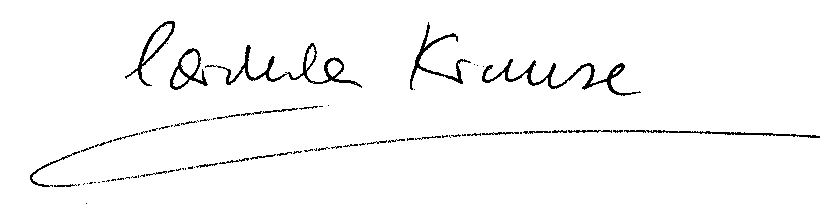 Cordula Krause